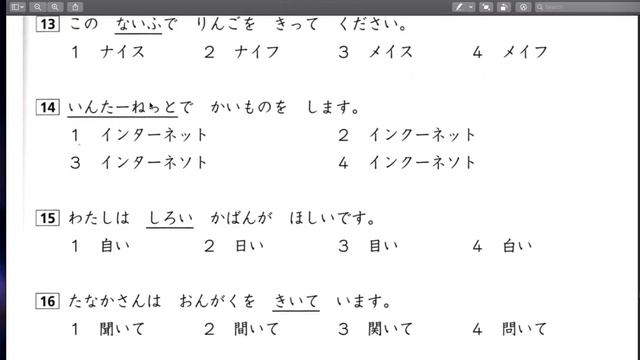 13 この ないふで りんごを きって ください。
1 ナイス 2 ナイフ 3 メイス 4 メイフ
14 いんたーねっとで かいものを します。
1 インターネット 2 インクーネット
3 インターネソト 4 インクーネソト
15 わたしは しろい かばんが ほしいです。
1 自い 2 日い 3 目い 4 白い
16 たなかさんは おんがくを きいて います。
1 聞いて 2 間いて 3 関いて 4 問いて
Search